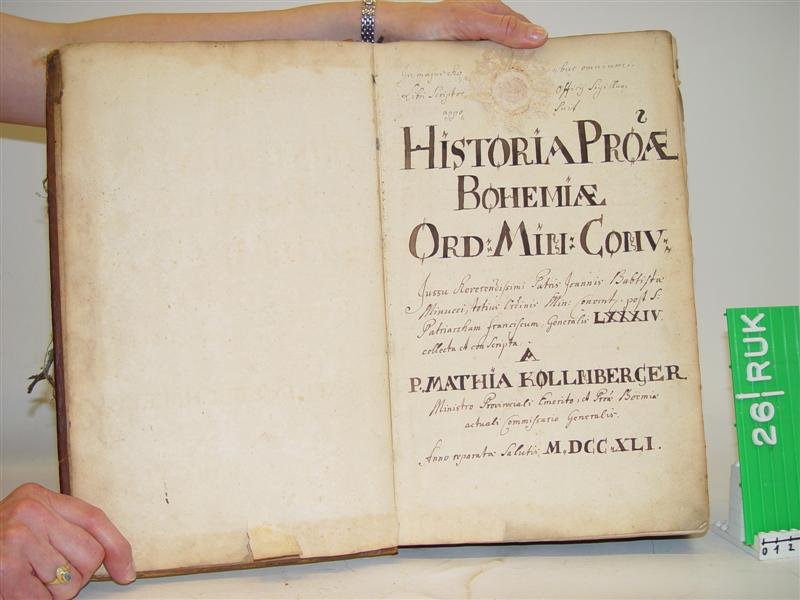 In majori
Libri Scriptor
appo
bus omnium
Officij Sigillum
Suit
HISTORIA PROÆ
BOHEMIÆ
ORD: MIN: CONV:
Jussu Reverendissimi Patris Joannis Babtistæ
Minucci, totius Ordinis Min: Convent, post S.
Patriarcham franciscum, Generalis LXXXIV.
collecta et conscripta.
A
P. MATHIA KOLLNBERGER
Ministro Provinciali Emerito, et Proæ Boemiæ
actuali Commissario Generalis.
Anno reparatæ Salutis M.DCC.XLI.
26/RUK
0 1 2